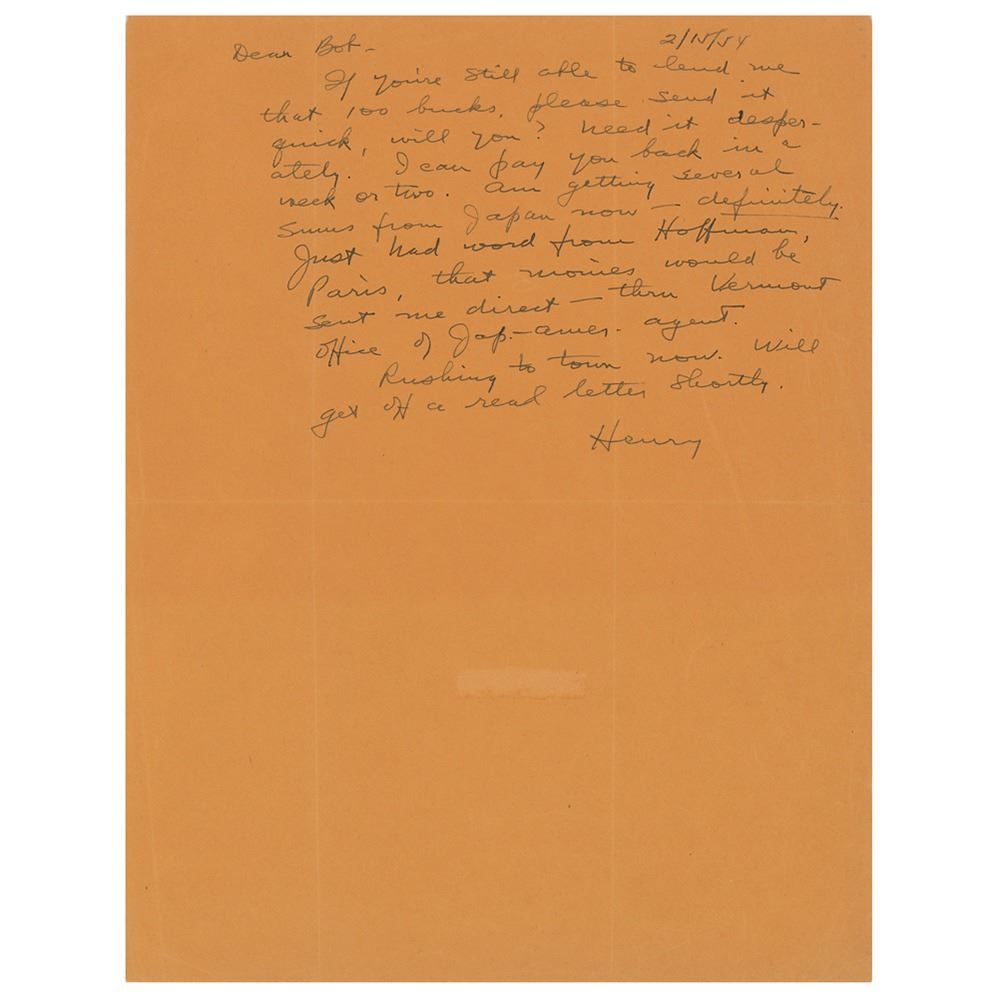 Dear Bob - 2/15/54
If you're still able to lend me
that 100 bucks, please send it
quick, will you? Need it desper-
ately. I can pay you back in a
week or two. Am getting several
sums from Japan now — definitely.
Just had word from Hoffman,
Paris, that monies would be
sent me direct — thru Vermont
office of Jap.-Amer. agent.
Rushing to town now. Will
get off a real letter shortly.
Henry